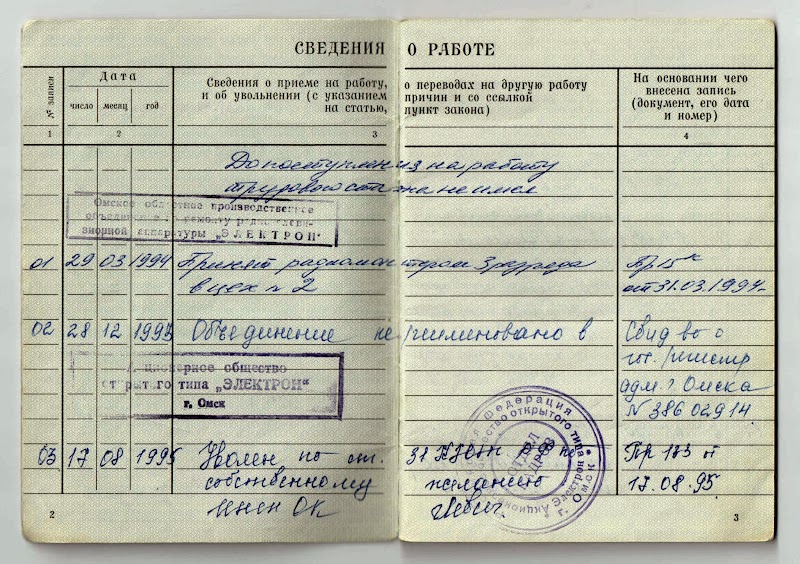 СВЕДЕНИЯ О РАБОТЕ
№ записи
Дата
число месяц год
Сведения о приеме на работу, о переводах на другую работу
и об увольнении (с указанием причин и со ссылкой
на статью, пункт закона)
На основании чего
внесена запись
(документ, его дата
и номер)
1 2 3 4
До поступления на работу
трудового стажа не имел
Омское областное производственное
объединение по ремонту радиотелеви-
зионной аппаратуры „ЭЛЕКТРОН"
01 29 03 1994 Принят радиомонтером 3 разряда Пр 15 к
в цех № 2 от 31.03.1994
02 28 12 1993 Объединение переименовано в Свид во о
гос. регистр
Акционерное общество
открытого типа „ЭЛЕКТРОН"
г. Омск
адм. г Омска
N 38602914.
03 17 08 1995 Уволен по ст. 31 КЗОТ по Пр 133 от
собственному желанию 17.08.95
ОК
Федерация
Акционерное общество открытого типа Электрон
г. Омск
ОТДЕЛ
КАДРОВ
2
3